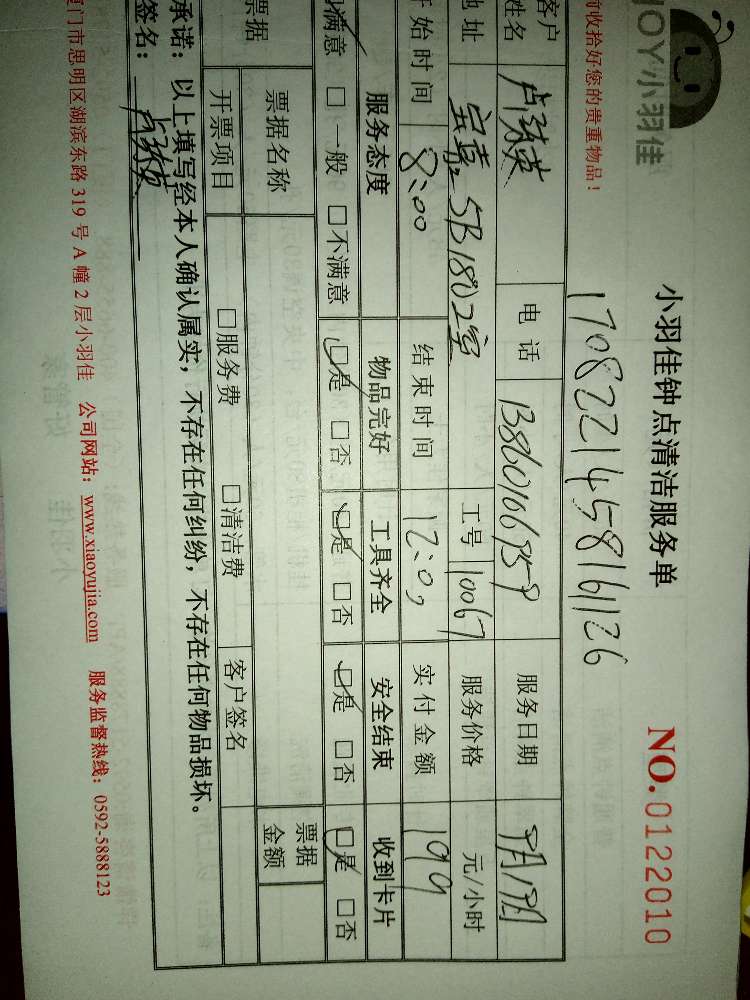 JOY小羽佳
小羽佳钟点清洁服务单
NO.0122010
前收拾好您的贵重物品！
1708221458161126
客户姓名 电话 服务日期
地址 5B1802室 工号 10067 服务价格 元/小时
开始时间 8:00 结束时间 12:0 实付金额 199
服务态度 物品完好 工具齐全 安全结束 收到卡片
满意 □一般 □不满意 □是 □否 □是 □否 □是 □否 □是 □否
票据 票据名称 票据金额
开票项目 □服务费 □清洁费 客户签名
承诺：以上填写经本人确认属实，不存在任何纠纷，不存在任何物品损坏。
签名：
厦门市思明区湖滨东路 319 号 A 幢 2 层小羽佳 公司网站：www.xiaoyujia.com 服务监督热线：0592-5888123